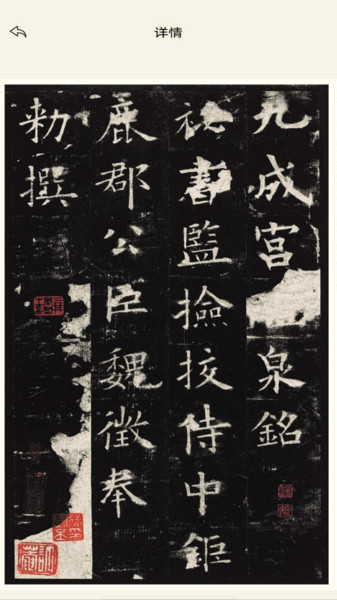 详情
九成宫泉銘
祕書監撿挍侍中鉅
鹿郡公臣魏徵奉
勑撰